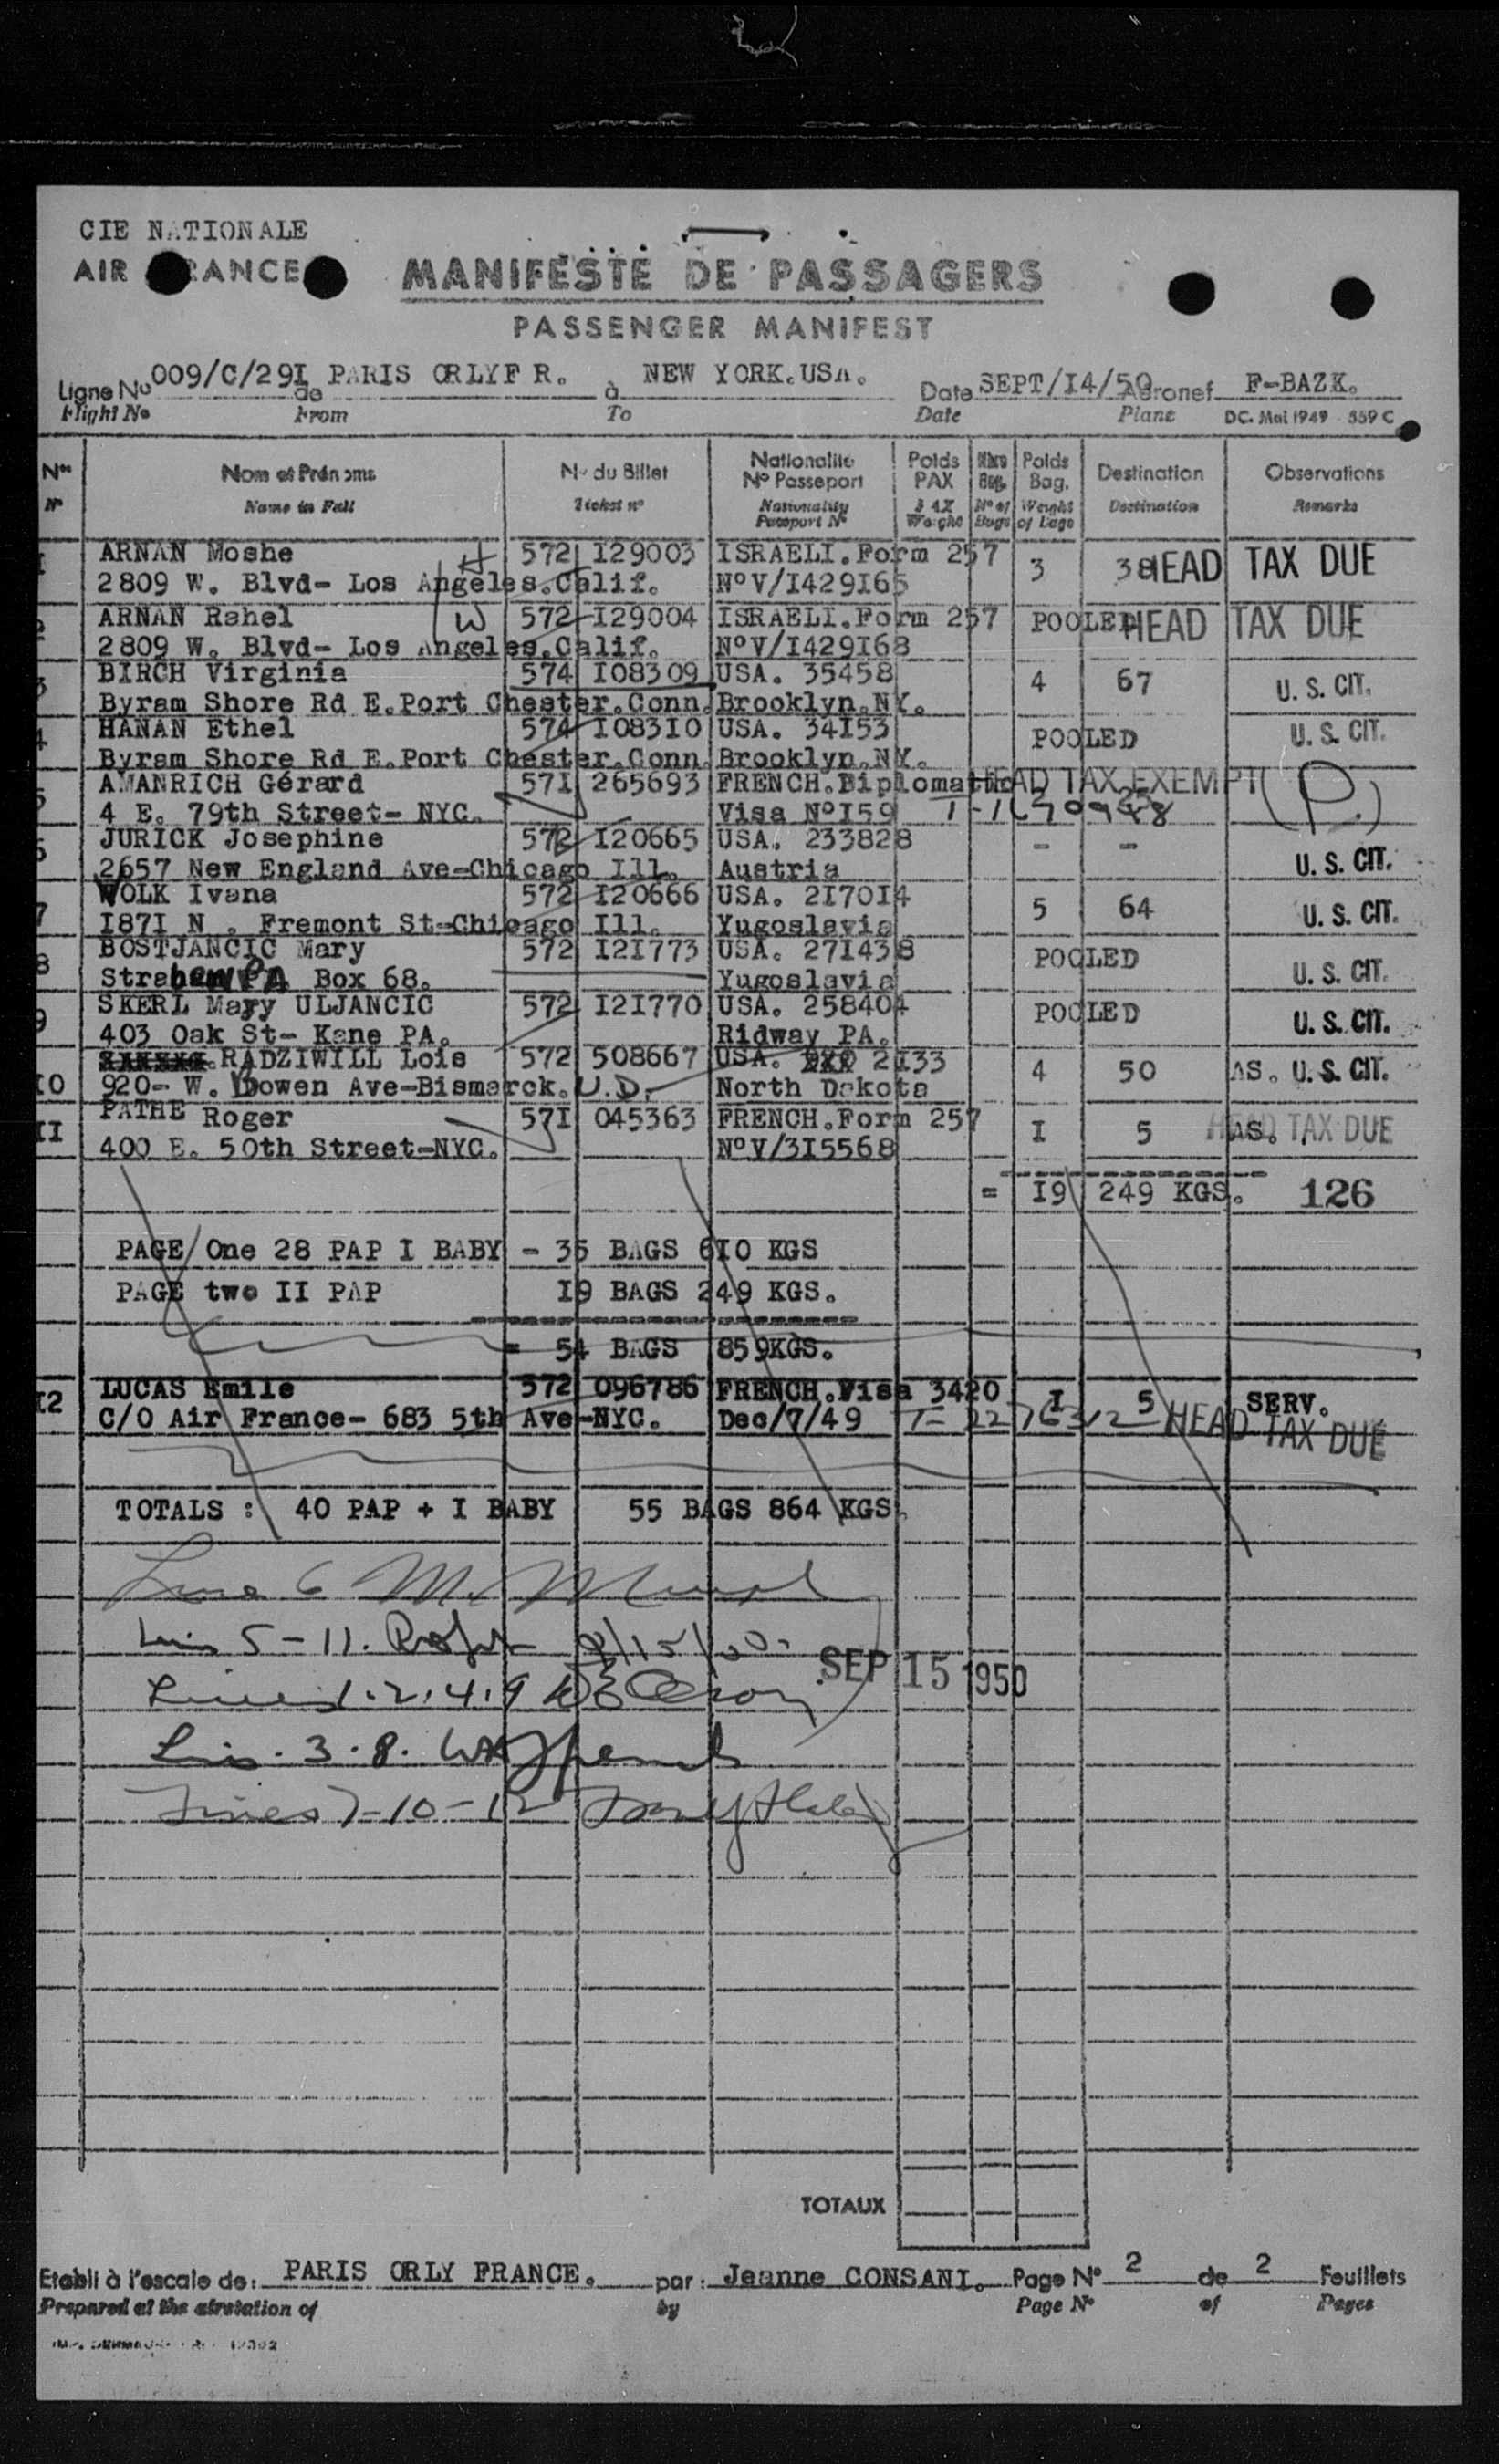 CIE NATIONALE
AIR FRANCE
MANIFESTE DE PASSAGERS
PASSENGER MANIFEST
Ligne No 009/C/29I de PARIS ORLYF R. à NEW YORK.USA. Date SEPT/I4/50 Aéronef F-BAZK.
Flight No From To Date Plane DC. Mai 1949 - 559 C
Nos Nom et Prénoms No du Billet Nationalité No Passeport Poids PAX Nbre Bag. Poids Bag. Destination Observations
No Name in Full Ticket no Nationality Passport No PAX Weight No of Bags Weight of Bags Destination Remarks
I ARNAN Moshe H 572 I29003 ISRAELI.Form 257 3 38 HEAD TAX DUE
2809 W. Blvd- Los Angeles.Calif. NoV/I429165
2 ARNAN Rahel W 572 I29004 ISRAELI.Form 257 POOLED HEAD TAX DUE
2809 W. Blvd- Los Angeles.Calif. NoV/I429168
3 BIRCH Virginia 574 I08309 USA. 35458 4 67 U. S. CIT.
Byram Shore Rd E.Port Chester.Conn. Brooklyn.NY.
4 HANAN Ethel 574 I08310 USA. 34I53 POOLED U. S. CIT.
Byram Shore Rd E.Port Chester.Conn. Brooklyn.NY.
5 AMANRICH Gérard 57I 265693 FRENCH.Diplomatic HEAD TAX EXEMPT (P.)
4 E. 79th Street- NYC. Visa NoI59
6 JURICK Josephine 572 I20665 USA. 233828 - -
2657 New England Ave-Chicago Ill. Austria U. S. CIT.
7 WOLK Ivana 572 I20666 USA. 2I70I4 5 64 U. S. CIT.
I87I N . Fremont St-Chicago Ill. Yugoslavia
8 BOSTJANCIC Mary 572 I2I773 USA. 271438 POOLED U. S. CIT.
PA Box 68. Yugoslavia
9 SKERL Mary ULJANCIC 572 I2I770 USA. 258404 POOLED U. S. CIT.
403 Oak St- Kane PA. Ridway PA.
RADZIWILL Lois 572 508667 USA. 2I33 4 50 AS. U. S. CIT.
I0 920- W. Bowen Ave-Bismarck. North Dakota
II PATHE Roger 57I 045363 FRENCH.Form 257 I 5 AS. HEAD TAX DUE
400 E. 50th Street-NYC. NoV/3I5568
= I9 249 KGS. 126
PAGE One 28 PAP I BABY - 35 BAGS 6I0 KGS
PAGE two II PAP I9 BAGS 249 KGS.
= 54 BAGS 859KGS.
I2 LUCAS Emile 572 096786 FRENCH.Visa 3420 I 5 SERV.
C/O Air France- 683 5th Ave-NYC. Dec/7/49 HEAD TAX DUE
TOTALS : 40 PAP + I BABY 55 BAGS 864 KGS.
5-11. 9/15/50
SEP 15 1950
Lines 1.2.4.9
3.8.
Lines 7-10-12
TOTAUX
Etabli à l'escale de: PARIS ORLY FRANCE. par: Jeanne CONSANI. Page No 2 de 2 Feuillets
Prepared at the airstation of by Page No of Pages